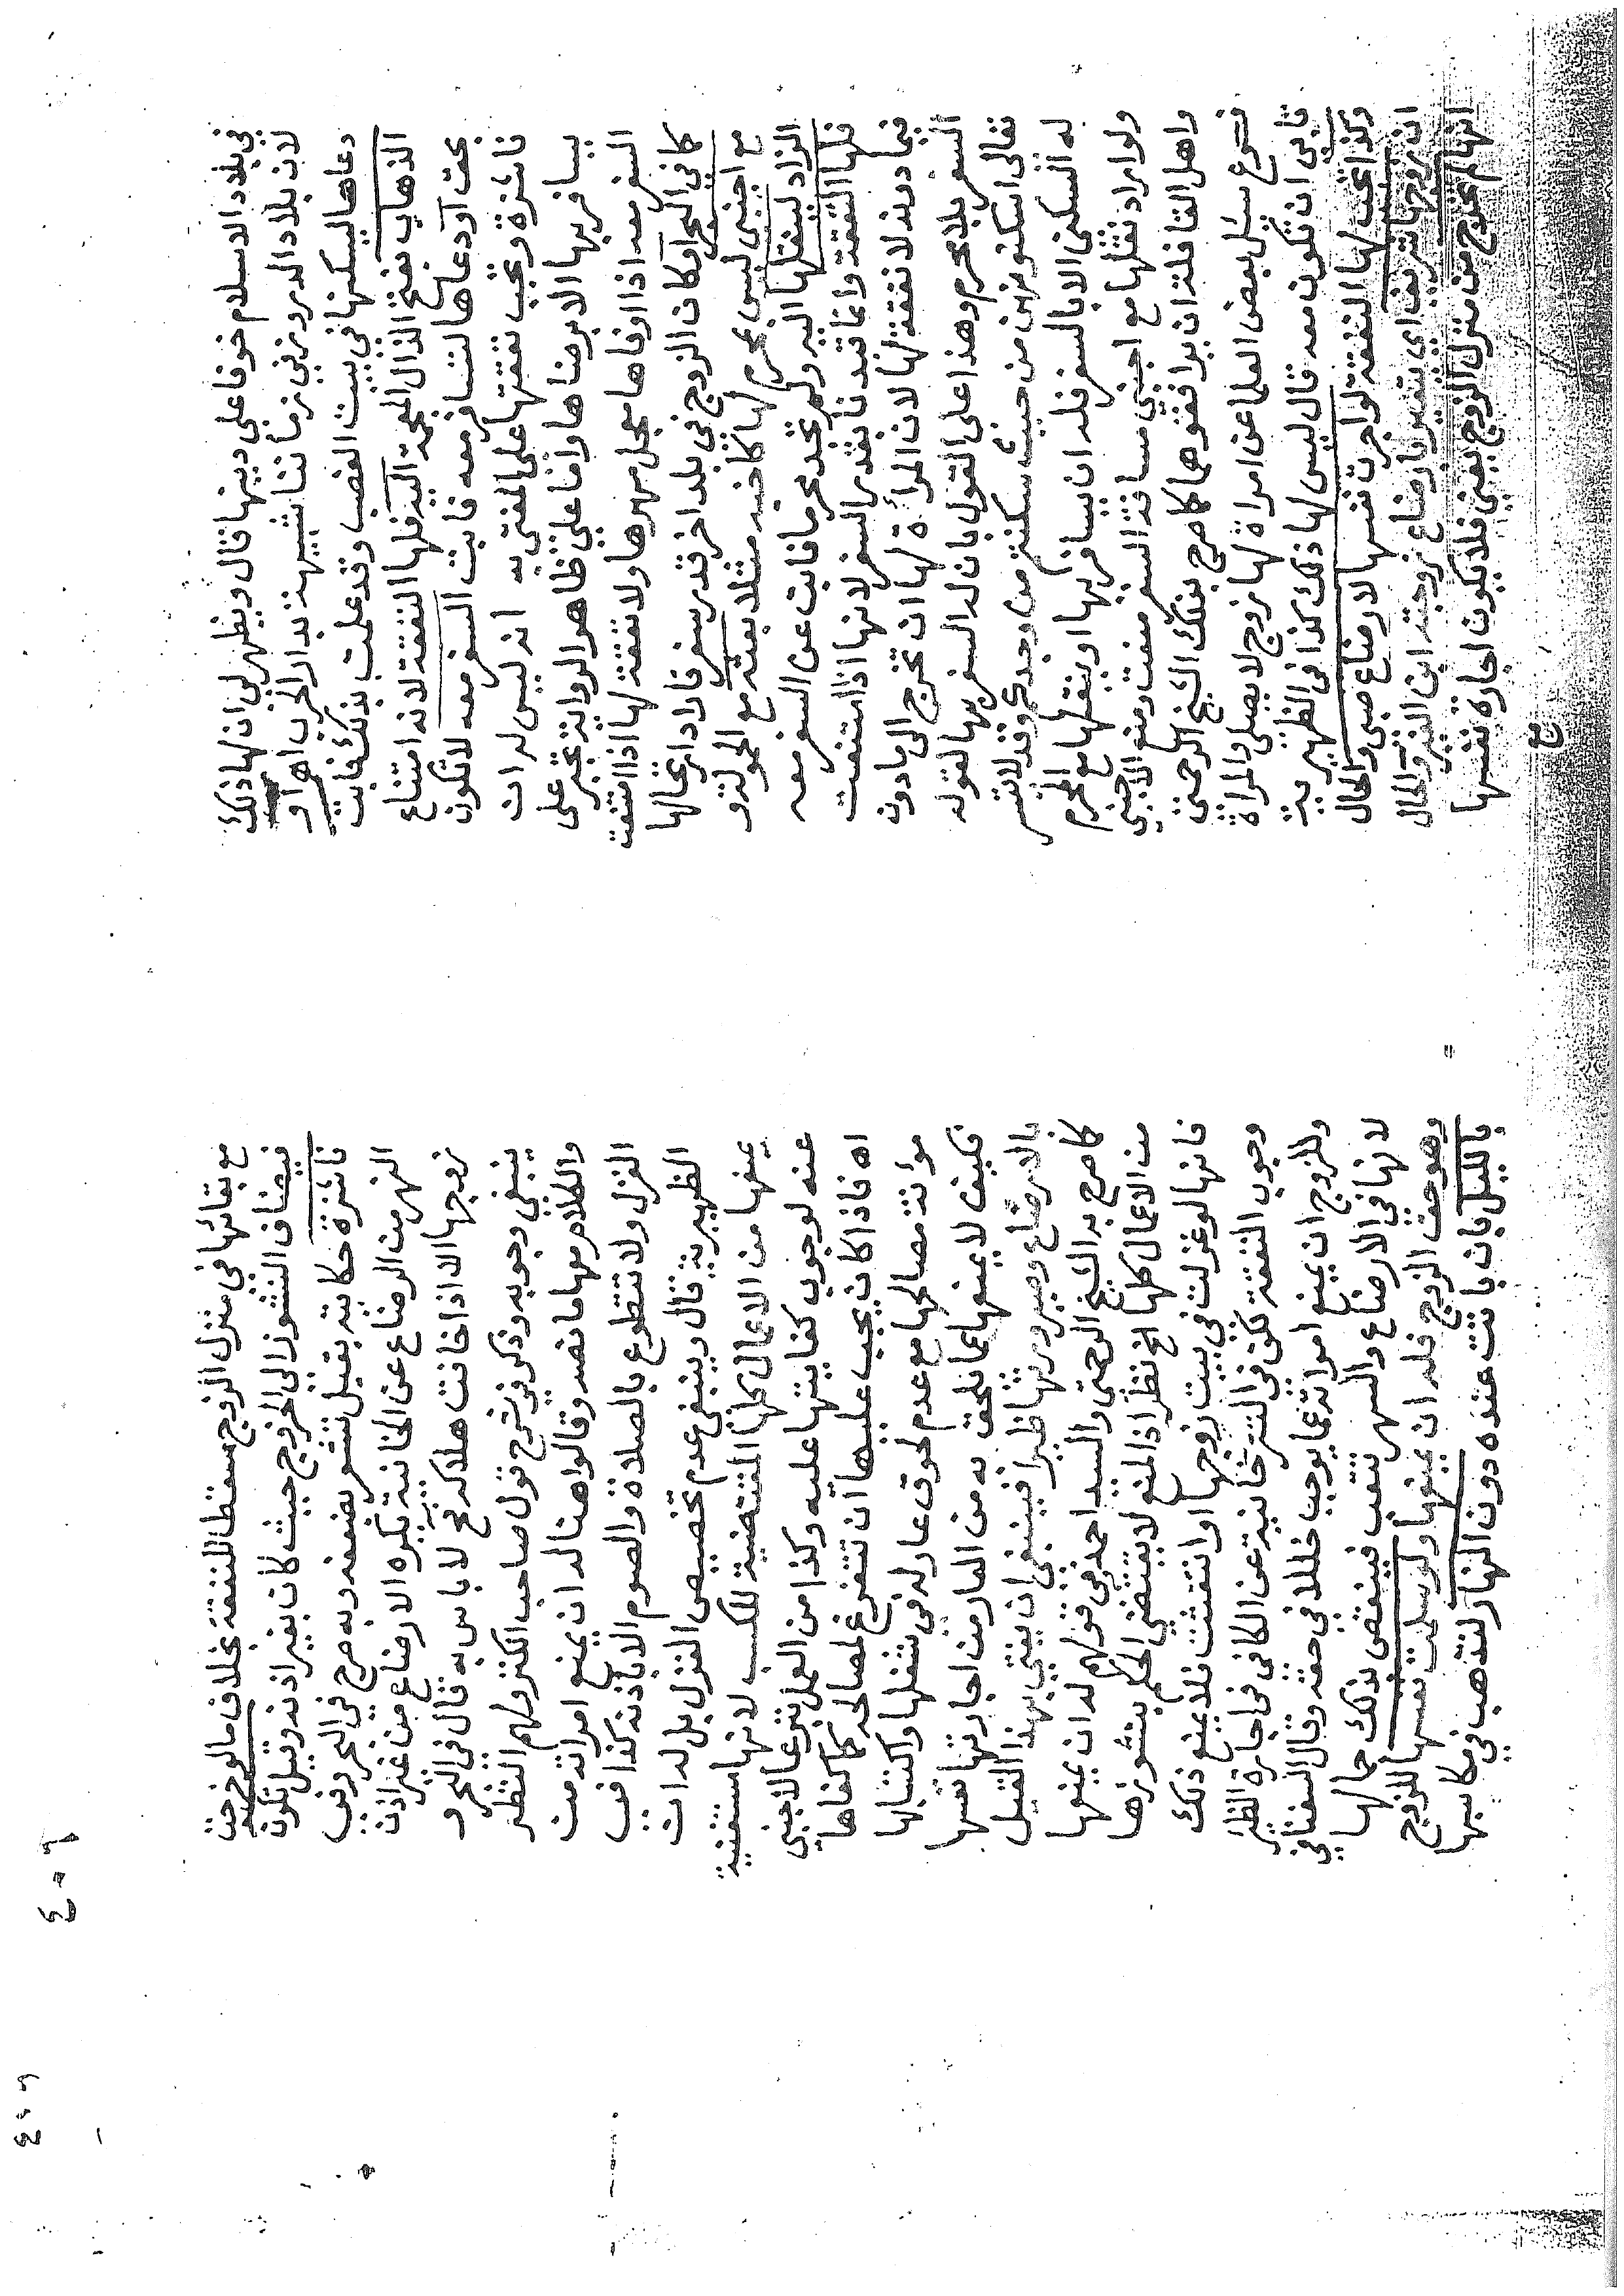 في بلاد الاسلام خوفا على دينها قال ويظهر لي ان لها ذلك
لان بلاد الدروز في زماننا شبيهة بدار الحرب اهـ او
دعاها ليسكنها في بيت الغصب وقد علمت بذلك فابت
الذهاب بفتح الذال المعجمة اليه فلها النفقة لانه امتناع
بحق او دعاها لتسافر معه فابت السفر معه لا تكون
ناشزة وتجب نفقتها على المفتى به انه ليس له ان
يسافر بها الا برضاها واما على ظاهر الرواية تجبر على
السفر معه اذا اوفاها معجل مهرها ولا نفقة لها اذا امتنعت
كما في البحر او كان الزوج في بلد اخر قدر سفر فاراد انتقالها
مع اجنبي ليس بمحرم لها كاخيه مثلا بعثه مع الحمولة و
الزاد لينقلها اليه ولم تجد محرما فابت عن السفر معه
فلها النفقة وانما قيدنا بقدر السفر لانها اذا امتنعت
فيما دونه لا نفقة لها لان المرأة لها ان تخرج الى ما دون
السفر بلا محرم وهذا على القول بان له السفر بها لقوله
تعالى اسكنوهن من حيث سكنتم من وجدكم وقد لا تتيسر
له السكنى الا بالسفر فله ان يسافر بها او ينقلها مع المحرم
ولو اراد نقلها مع اجنبي مسافة السفر منعت ومنع الاجنبي
واهل القافلة ان يرافقوهما كما صرح بذلك الشيخ الرحمتي
فروع سئل بعض العلما عن امراة لها زوج لا يصلي والمراة
تابى ان تكون معه قال ليس لها ذلك كذا في الظهيرية
وكذا تجب لها النفقة لو اجرت نفسها لارضاع صبي والحال
ان زوجها شريف اي يتعير بارضاع زوجته ابن الغير والحال
انها لم تخرج من منزل الزوج يعني فلا تكون اجارة نفسها
مع
مع بقائها في منزل الزوج مسقطا للنفقة بخلاف ما لو خرجت
فيضاف النشوز الى الخروج حيث كان بغير اذنه وقيل تكون
ناشزة حكايته بقيل تشعر بضعفه وبه صرح في البحر وفي
النهر من الرضاع عن الخانية يكره الارضاع من غير اذن
زوجها الا اذا خافت هلاكه فح لا باس به قال في البحر و
ينبغي وجوبه وذكر في شرح قول صاحب الكنز ولهم النظر
والكلام معها ما نصه وقالوا هنا له ان يمنع امراته من
الغزل ولا تتطوع بالصلاة والصوم الا باذنه كذا في
الظهيرية قال وينبغي عدم تخصيص الغزل بل له ان
يمنعها من الاعمال كلها المقتضية للكسب لانها مستغنية
عنه لوجوب كفايتها عليه وكذا من العمل تبرعا لاجنبي
اهـ فاذا كان يجب عليها ان تتفرغ لمصالحه كما كفاها
مؤانة مصالحها مع عدم لحوق عار له في شغلها واكتسابها
فكيف لا يمنعها عما تلحق به من العار من اجارتها نفسها
بالارضاع وصيرورتها ظيرا فينبغي ان يفتى بهذا القيل
كما صرح به الشيخ الرحمتي والسيد احمد في قولهم له ان يمنعها
من الاعمال كلها الخ نظر اذ المنع لا يقتضي الحكم بنشوزها
فانها لو غزلت في بيت زوجها او انتقشت فلا يمنع ذلك
وجوب النفقة لكن في التترخانية عن الكافي في اجارة الظئر
وللزوج ان يمنع امراته عما يوجب خللا في حقه وقال السغناقي
لانها في الارضاع والسهر تتعب فينقص بذلك جمالها
وهو حق الزوج فله ان يمنعها ولو سلمت نفسها للزوج
بالليل بان باتت عنده دون النهار لتذهب في مكاسبها
٤٠٦